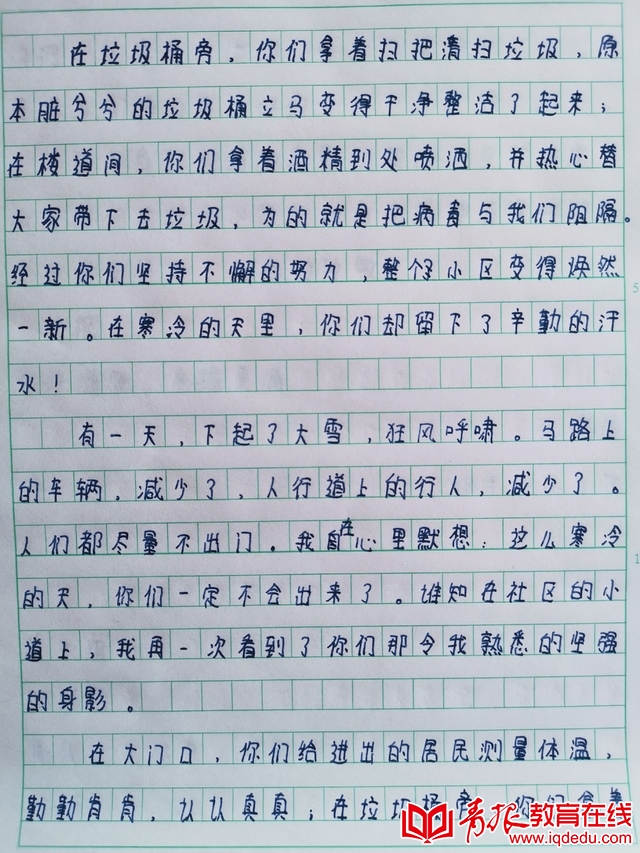 在垃圾桶旁，你们拿着扫把清扫垃圾，原
本脏兮兮的垃圾桶立马变得干净整洁了起来；
在楼道间，你们拿着酒精到处喷洒，并热心替
大家带下去垃圾，为的就是把病毒与我们阻隔。
经过你们坚持不懈的努力，整个小区变得焕然
一新。在寒冷的天里，你们却留下了辛勤的汗
水！
有一天，下起了大雪，狂风呼啸。马路上
的车辆，减少了，人行道上的行人，减少了。
人们都尽量不出门。我在心里默想：这么寒冷
的天，你们一定不会出来了。谁知在社区的小
道上，我再一次看到了你们那令我熟悉的坚强
的身影。
在大门口，你们给进出的居民测量体温，
勤勤肯肯，认认真真；在垃圾桶旁，你们拿着
青报教育在线
www.iqdedu.com
5
1